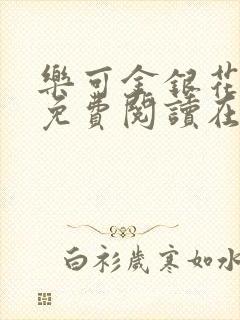 樂可金銀花
免費閱讀在
白衫歲寒如水